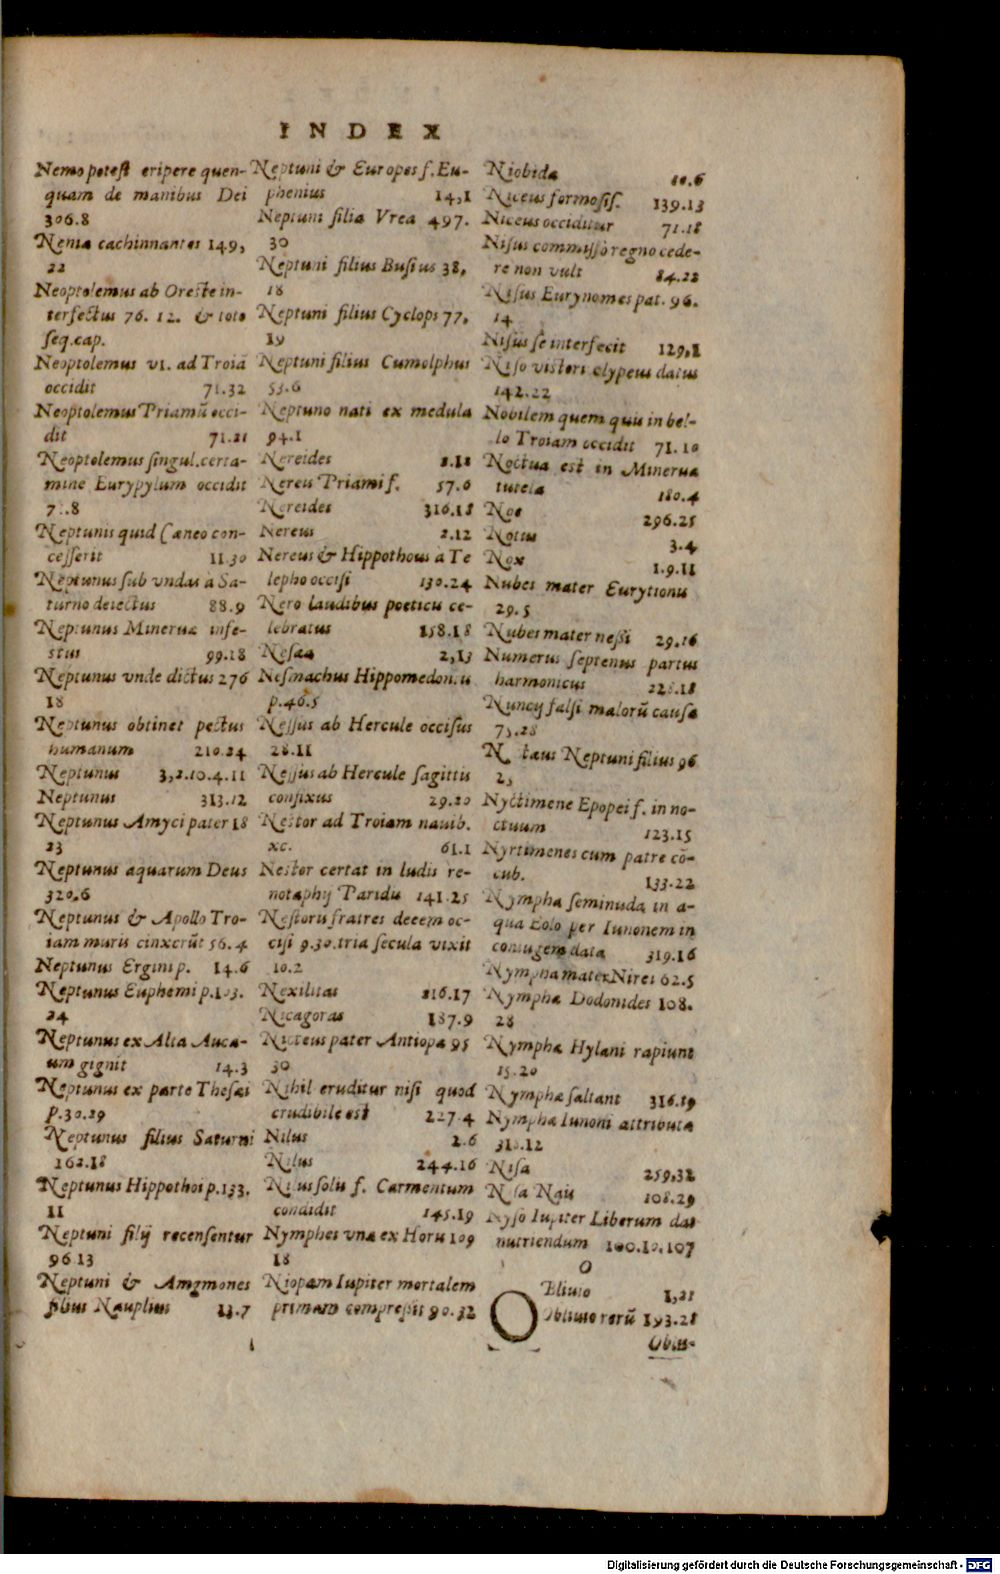 INDEX
Nemo potest eripere quen-
quam de manibus Dei
306.8
Neniæ cachinnantes 149,
22
Neoptolemus ab Oreste in-
terfectus 76. 12. & toto
seq.cap.
Neoptolemus vi. ad Troiã
occidit 71.32
Neoptolemus Priamũ occi-
dit 71.21
Neoptolemus singul.certa-
mine Eurypylum occidit
Neptunis quid Cæneo con-
cesserit 11.30
Neptunus sub undas à Sa-
turno deiectus 88.9
Neptunus Minervæ infe-
stus 99.18
Neptunus vnde dictus 276
18
Neptunus obtinet pectus
humanum 210.24
Neptunus 3,2.10.4.11
Neptunus 313.12
Neptunus Amyci pater 18
23
Neptunus aquarum Deus
320.6
Neptunus & Apollo Tro-
iam muris cinxerũt 56.4
Neptunus Ergini p. 14.6
Neptunus Euphemi p.103.
24
Neptunus ex Alta Auca-
um gignit 14.3
Neptunus ex parte Thesei
p.30.29
Neptunus filius Saturni
162.18
Neptunus Hippothoi p.133.
11
Neptuni filij recensentur
96 13
Neptuni & Amymones
filius Nauplius 13.7
Neptuni & Europes f.Eu-
phenius 14,1
Neptuni filia Vrea 497.
30
Neptuni filius Busius 38,
18
Neptuni filius Cyclops 77,
19
Neptuni filius Cumolphus
53.6
Neptuno nati ex medula
94.1
Nereides 8.18
Nereu Priami f. 57.6
Nereides 316.18
Nereus 2.12
Nereus & Hippothous à Te
lepho occisi 130.24
Nero laudibus poeticis ce-
lebratus 158.18
Nesæa 2,13
Nesmachus Hippomedon.is
p.46.5
Nessus ab Hercule occisus
28.11
Nessus ab Hercule sagittis
confixus 29.20
Nestor ad Troiam navib.
xc. 61.1
Nestor certat in ludis re-
notaphij Paridis 141.25
Nestoris fratres decem oc-
cisi 9.30.tria secula vixit
10.2
Nexilitas 216.17
Nicagoras 187.9
Nicteus pater Antiopæ 95
30
Nihil eruditur nisi quod
crudibile est 227.4
Nilus 2.6
Nilus 244.16
Nilus solis f. Carmentum
condidit 145.19
Nymphes vna ex Horis 109
18
Niopam Iupiter mortalem
primam compressit 90.32
Niobidæ 10.6
Niceus formosiss. 139.13
Niceus occiditur 71.18
Nisus commisso regno cede-
re non vult 84.22
Nisus Eurynomes pat. 96.
14
Nisus se interfecit 129,1
Niso victori clypeus datus
142.22
Nobilem quem quis in bel-
lo Troiam occidit 71.10
Noctua est in Minervæ
tutela 180.4
Noe 296.25
Notus 3.4
Nox 1.9.11
Nubes mater Eurytionis
29.5
Nubes mater nessi 29.16
Numerus septenus partus
harmonicus 228.18
Nuncij falsi malorũ causa
75.28
Neptuni filius 96
Nyctimene Epopei f. in no-
ctuum 123.15
Nyctimenes cum patre cõ-
cub. 133.22
Nympha seminuda in a-
qua Eolo per Iunonem in
coniugem data 319.16
Nympha mater Nirei 62.5
Nymphæ Dodonides 108.
28
Nymphæ Hylani rapiunt
15.20
Nymphæ saltant 316.19
Nymphæ Iunoni attributæ
318.12
Nisa 259,32
Nisa Nais 108.29
Nyso Iupiter Liberum dat
nutriendum 100.10.107
O
Oblivio 1,21
Oblivio rerũ 193.28
Obliu-
Digitalisierung gefördert durch die Deutsche Forschungsgemeinschaft - DFG